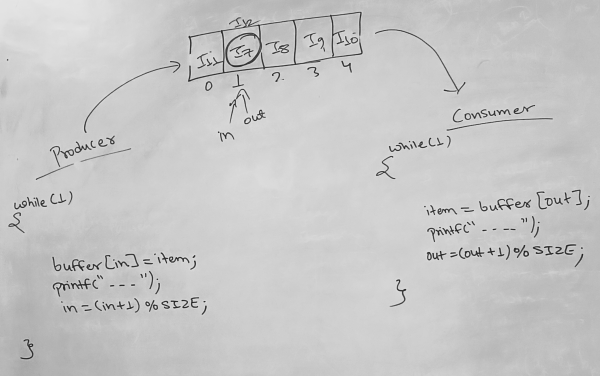 I12
I11 I7 I8 I9 I10
0 1 2 3 4
in out
Producer
while(1)
{
buffer[in]=item;
printf("---");
in=(in+1)%SIZE;
}
Consumer
while(1)
{
item=buffer[out];
printf("----");
out=(out+1)%SIZE;
}